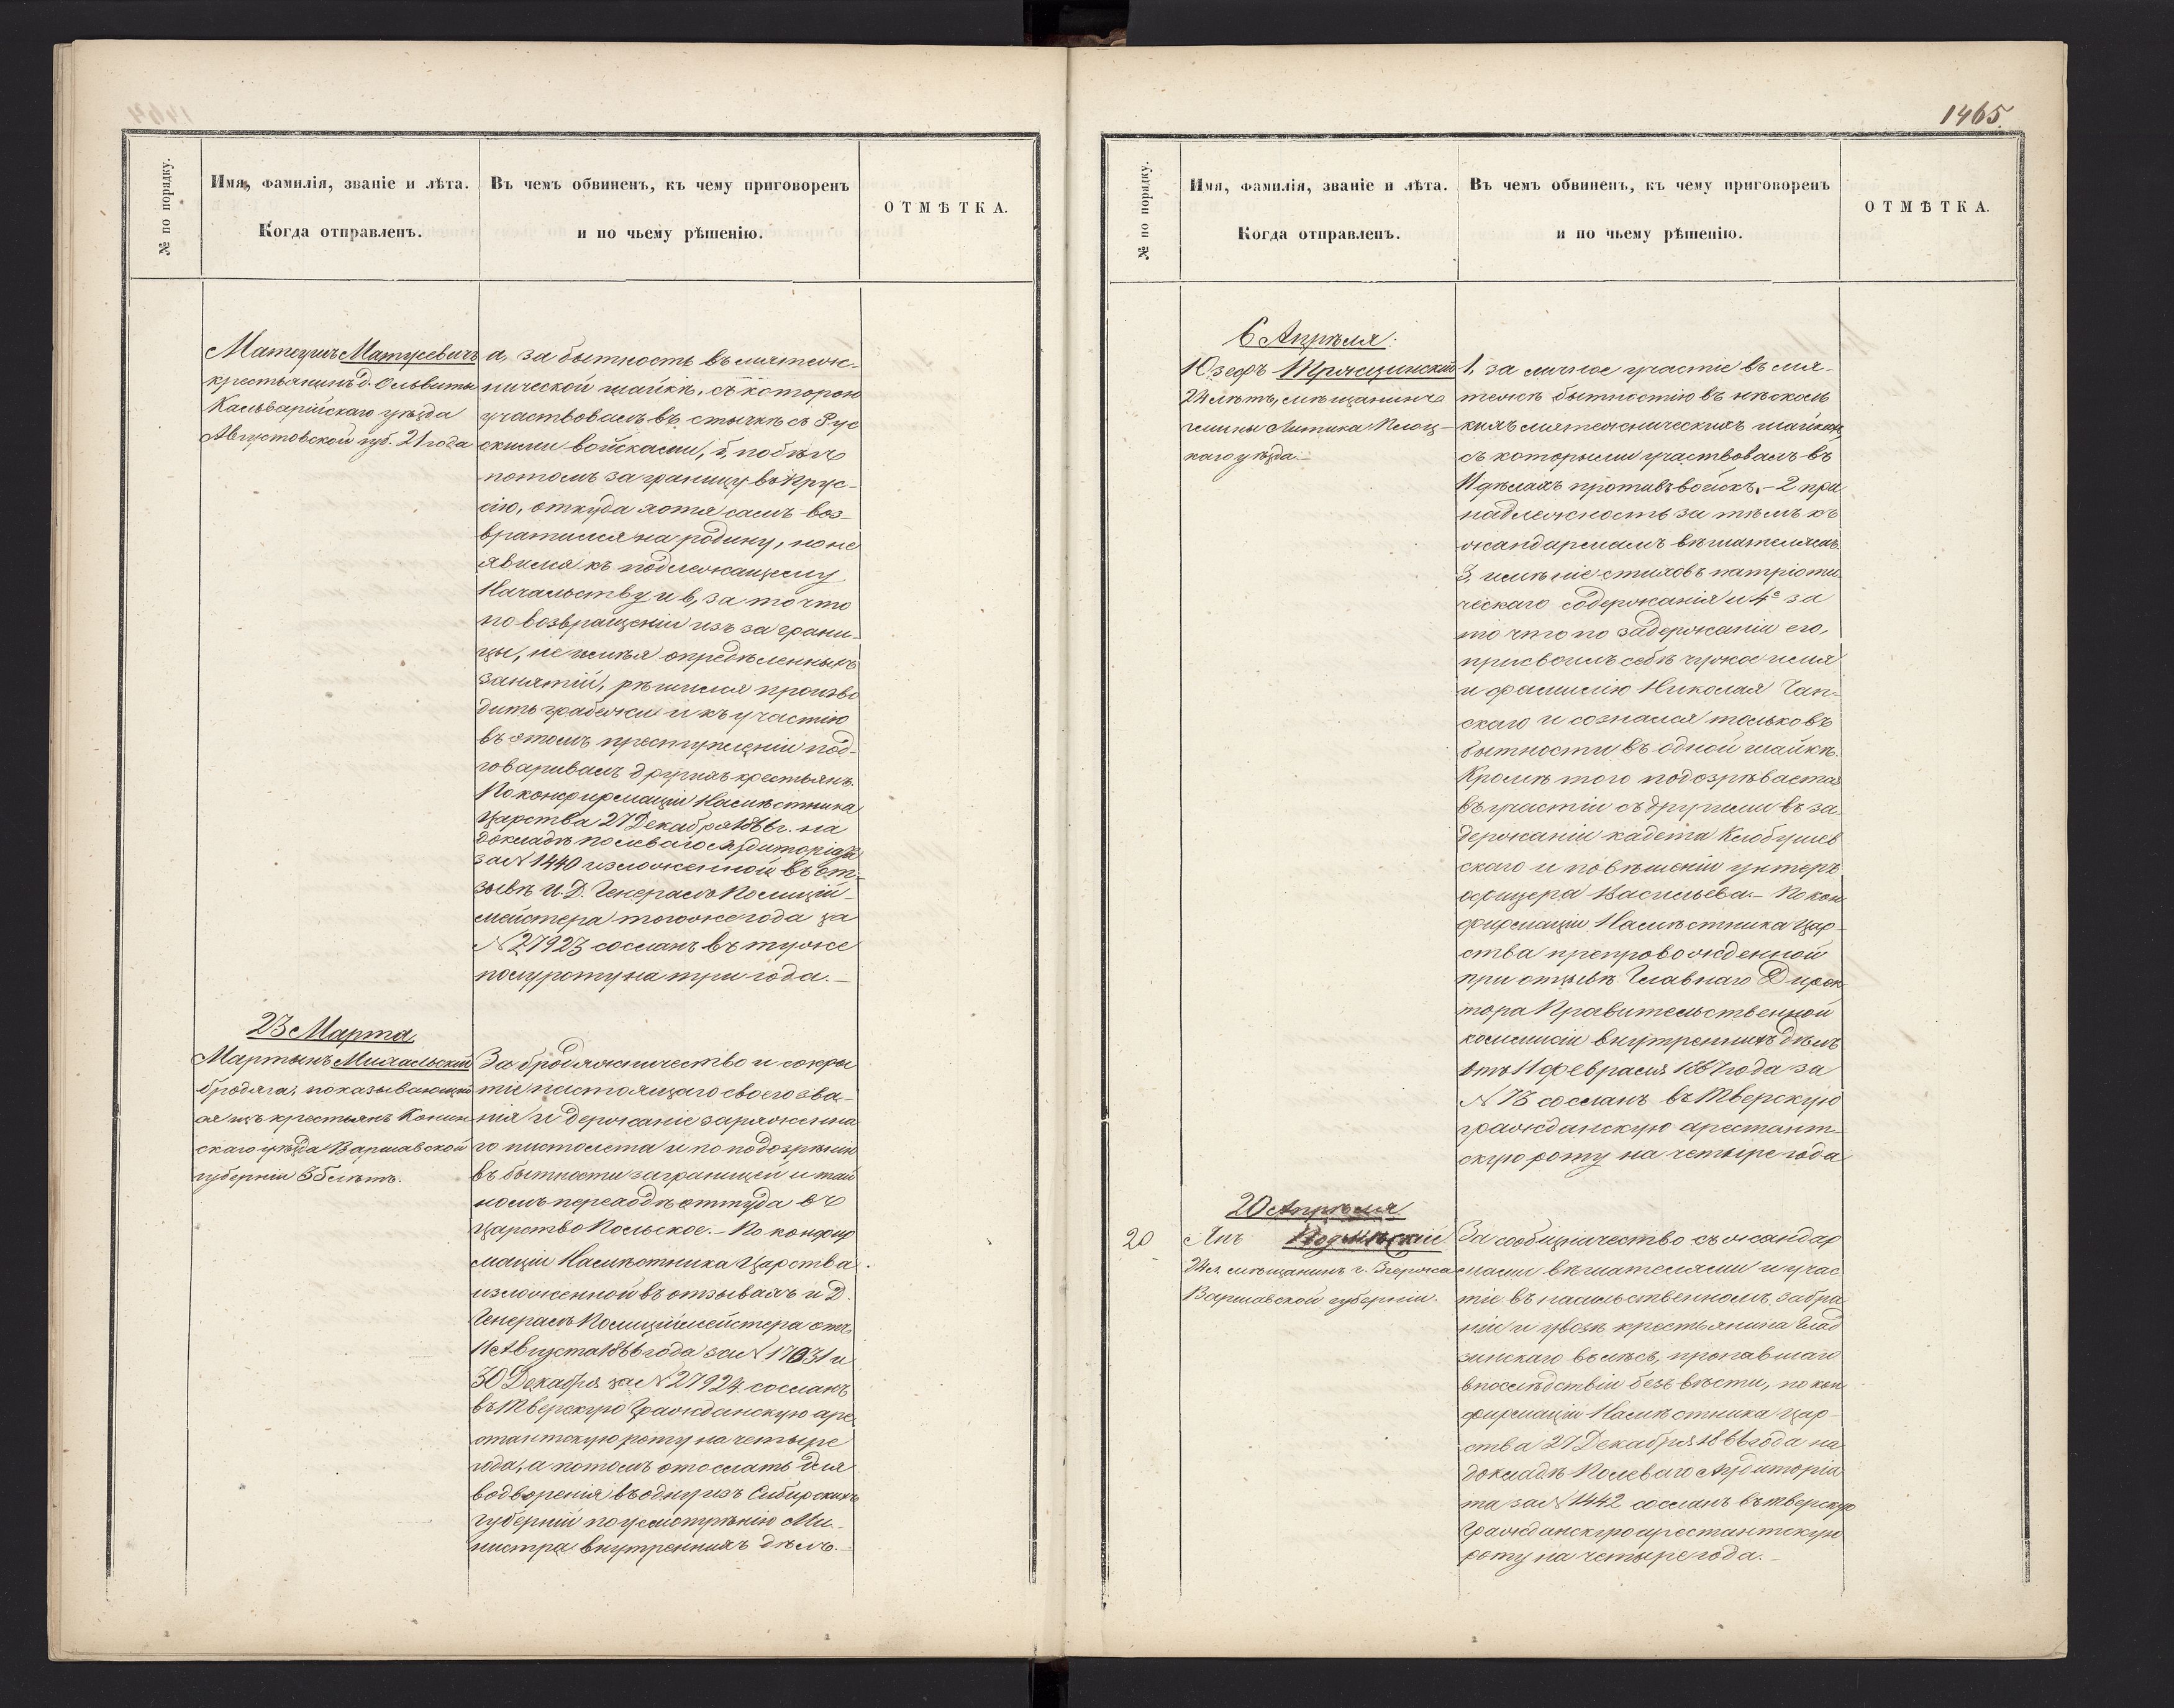 № по порядку.
Имя, фамилія, званіе и лѣта.
Когда отправленъ.
Въ чемъ обвиненъ, къ чему приговоренъ
и по чьему рѣшенію.
ОТМѢТКА.
Матеушъ Матусевичъ
крестьянинъ д. Ольвиты
Кальварійскаго уѣзда
Августовской губ. 21 года
а, за бытность въ мятеж-
нической шайкѣ, съ которой
участвовалъ въ стычкѣ съ Рус
скими войсками, б, побѣгъ
потомъ за границу въ Прус-
сію, откуда хотя самъ воз-
вратился на родину, но не
явился къ подлежащему
Начальству и в, за то что
по возвращеніи изъ за грани-
цы, не имѣя опредѣленныхъ
занятій, рѣшился произво
дить грабежи и къ участію
въ этомъ преступленіи под-
говаривалъ другихъ крестьянъ.
По конфирмаціи Намѣстника
Царства 27 Декабря 1866 г. на
докладѣ Полеваго Аудиторіата
за № 1440 изложенной въ от-
зывѣ И. Д. Генералъ Полицій-
мейстера того же года за
№ 27923 сосланъ въ туже
полуроту на три года.-
23 Марта
Мартынъ Михальскій
бродяга, показывающій
ся изъ крестьянъ Конин
скаго уѣзда Варшавской
губерніи 36 лѣтъ.
За бродяжничество и сокры
тіе настоящаго своего зва-
нія и держаніе заряженна
го пистолета и по подозрѣнію
въ бытности заграницей и тай
номъ переходѣ оттуда въ
Царство Польское.- По конфир
маціи Намѣстника Царства
изложенной въ отзывахъ И Д.
Генералъ Полиціймейстера отъ
11 Августа 1866 года за № 17031 и
30 Декабря за № 27924 сосланъ
въ Тверскую Гражданскую аре
стантскую роту на четыре
года, а потомъ отослать для
водворенія въ одну изъ Сибирскихъ
губерній по усмотрѣнію Ми-
нистра внутреннихъ дѣлъ.-
1465
№ по порядку.
Имя, фамилія, званіе и лѣта.
Когда отправленъ.
Въ чемъ обвиненъ, къ чему приговоренъ
и по чьему рѣшенію.
ОТМѢТКА.
6 Апрѣля:
Юзефъ
24 лѣтъ, мѣщанинъ
гмины Плоц-
каго уѣзда.-
1, за личное участіе въ мя-
тежѣ бытностію въ нѣсколь
кихъ мятежническихъ шайкахъ,
съ которыми участвовалъ въ
11 дѣлахъ противъ войскъ.- 2 при
надлежность за тѣмъ къ
жандармамъ вѣшателямъ.
3, имѣніе стиховъ патріоти
ческаго содержанія и 4е за
то что по задержаніи его,
присвоилъ себѣ чужое имя
и фамилію Николая Чап-
скаго и сознался только въ
бытности въ одной шайкѣ.
Кромѣ того подозрѣвается
въ участіи съ другими въ за-
держаніи кадета Клобушев
скаго и повѣшеніи унтеръ
офицера Васильева.- По кон
фирмаціи Намѣстника Цар-
ства препровожденной
при отзывѣ Главнаго Дирек
тора Правительственной
коммисіи внутреннихъ дѣлъ
отъ 11 февраля 1867 года за
№ 73 сосланъ въ Тверскую
гражданскую арестант-
скую роту на четыре года
20 Апрѣля
20
Янъ
24 л. мѣщанинъ г. Згержа
Варшавской губерніи.
За сообщничество съ жандар
мами вѣшателями и учас
тіе въ насильственномъ забра
ніи и увозѣ крестьянина Глад
зинскаго въ лѣсъ, пропавшаго
впослѣдствіи безъ вѣсти, по кон
фирмаціи Намѣстника Цар-
ства 27 Декабря 1866 года на
докладѣ Полеваго Аудиторіа
та за № 1442 сосланъ въ тверскую
Гражданскую арестантскую
роту на четыре года.-